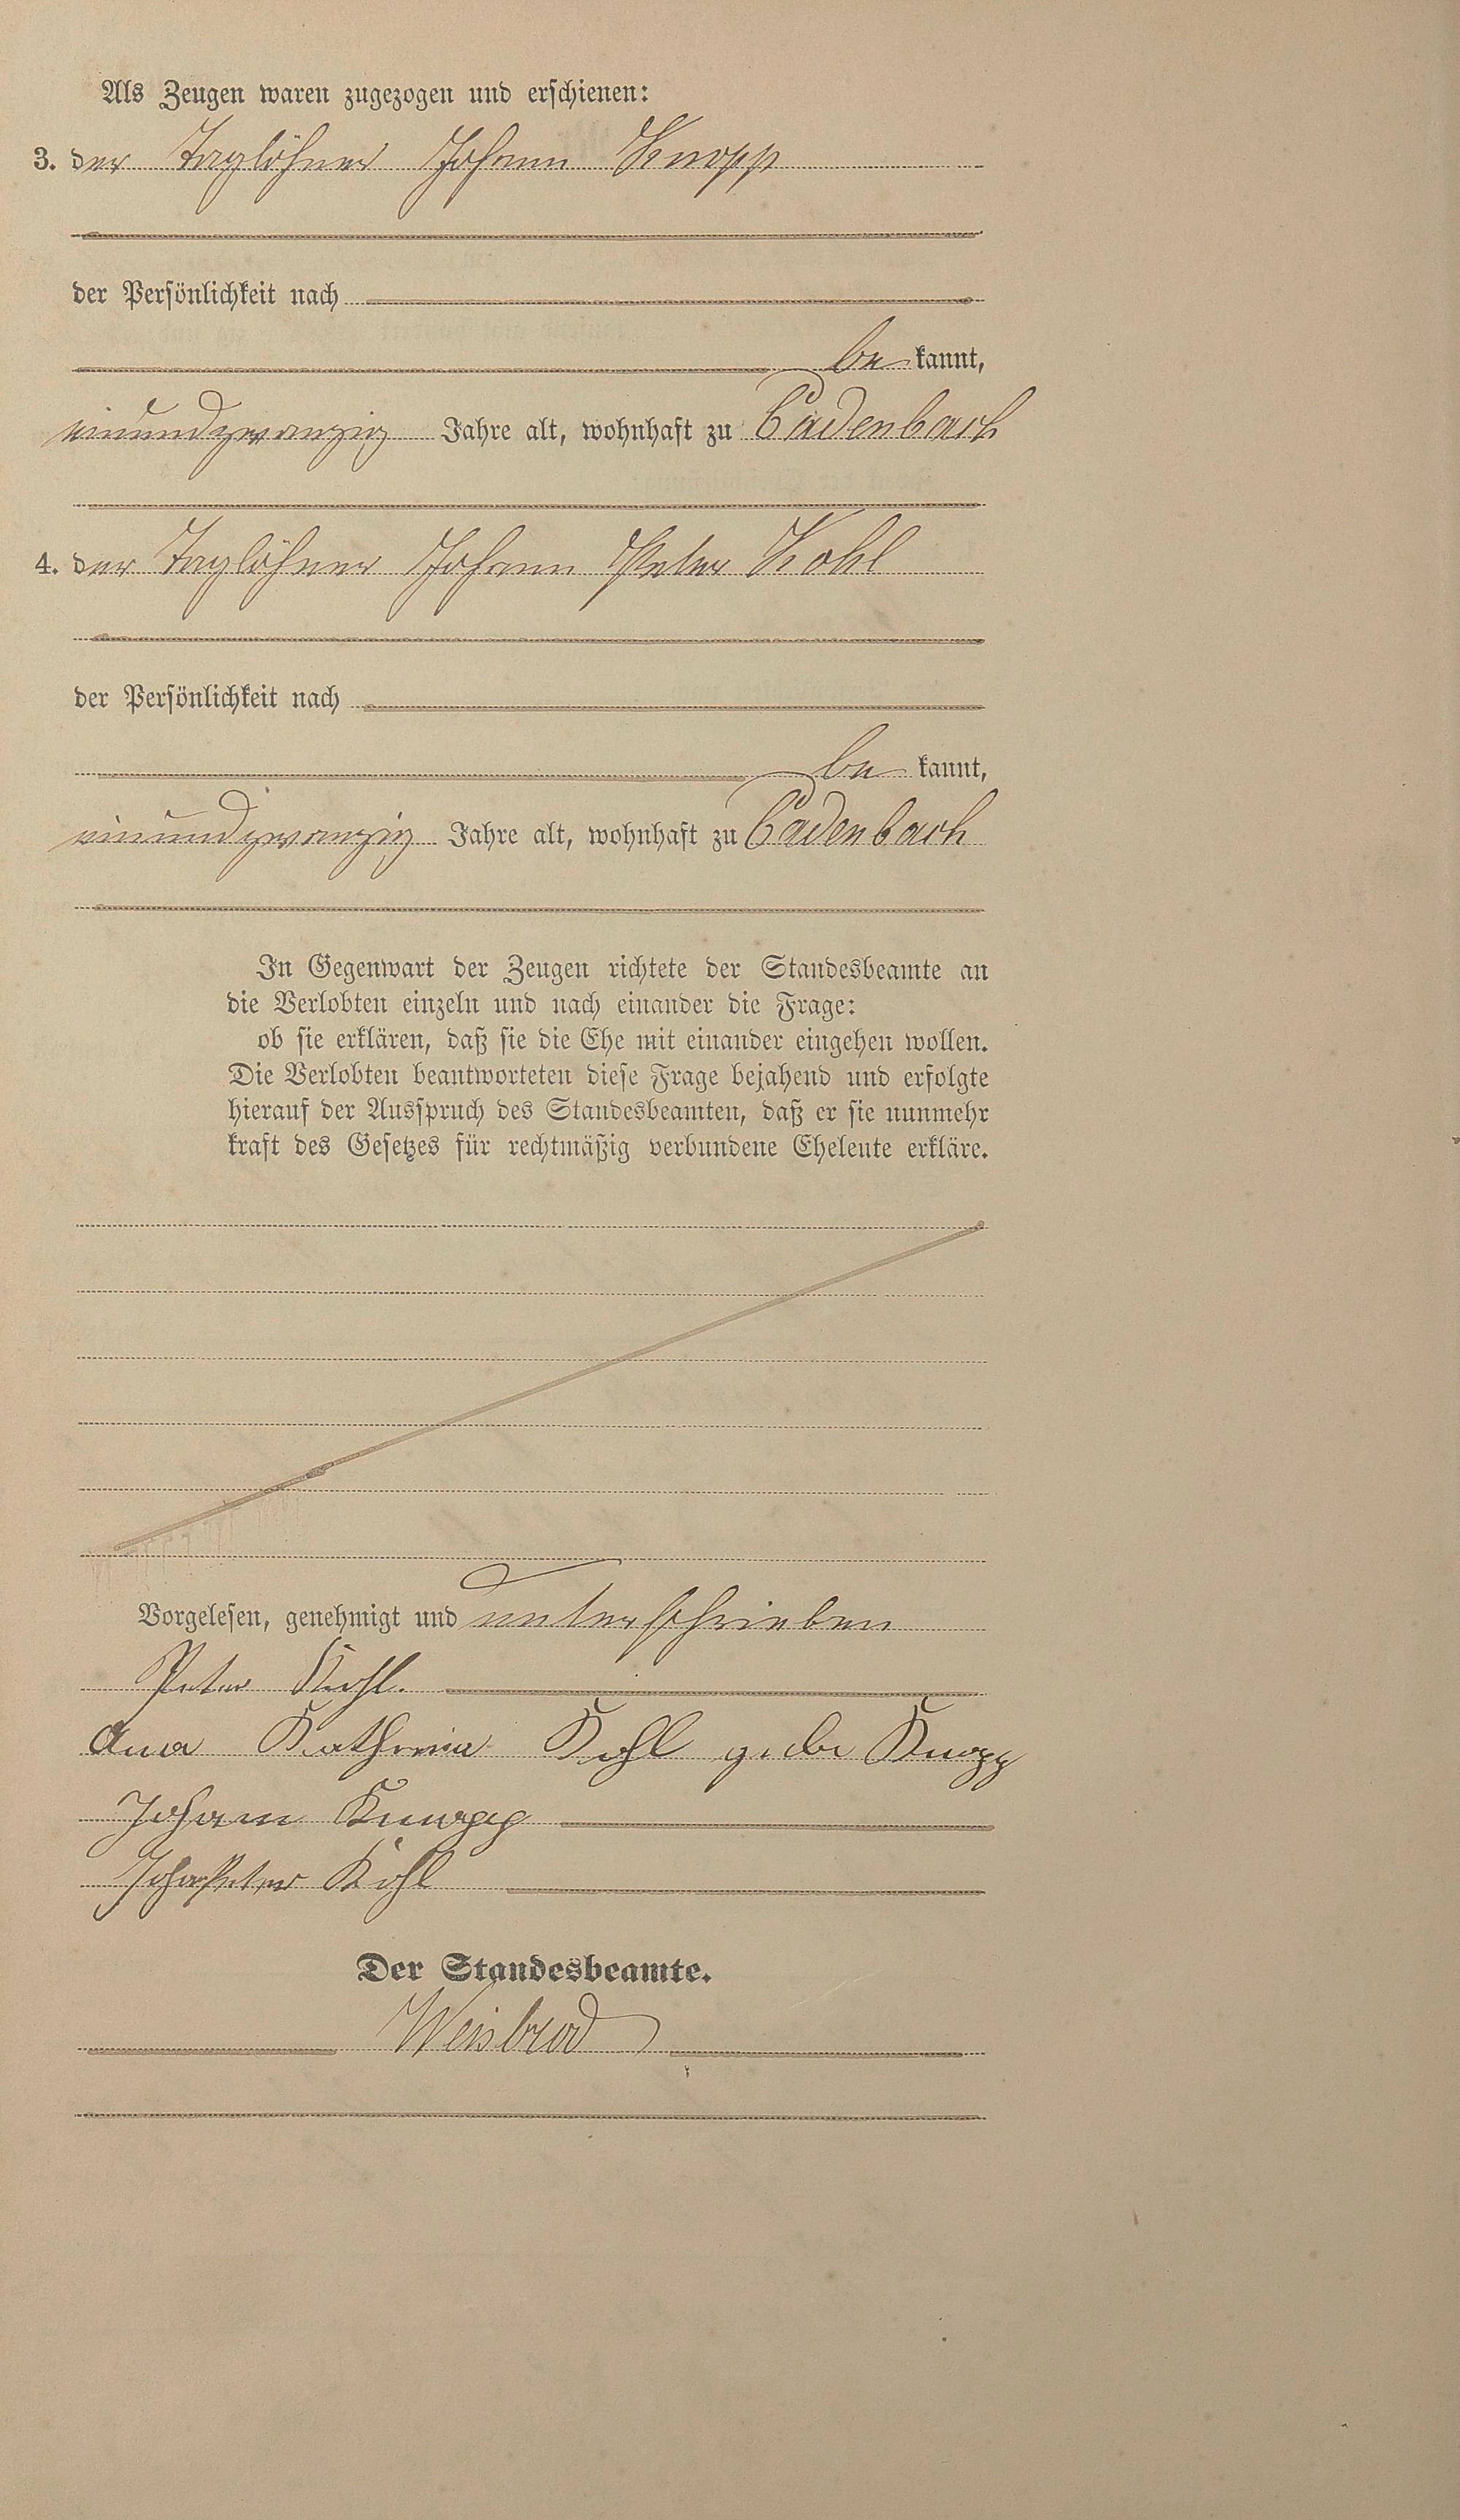 Als Zeugen waren zugezogen und erschienen:
3. der Taglöhner Johann Knopp
der Persönlichkeit nach
be kannt,
einundzwanzig Jahre alt, wohnhaft zu Cadenbach
4. der Taglöhner Johann Peter Kohl
der Persönlichkeit nach
be kannt,
einundzwanzig Jahre alt, wohnhaft zu Cadenbach
In Gegenwart der Zeugen richtete der Standesbeamte an
die Verlobten einzeln und nach einander die Frage:
ob sie erklären, daß sie die Ehe mit einander eingehen wollen.
Die Verlobten beantworteten diese Frage bejahend und erfolgte
hierauf der Ausspruch des Standesbeamten, daß er sie nunmehr
kraft des Gesetzes für rechtmäßig verbundene Eheleute erkläre.
Vorgelesen, genehmigt und unterschrieben
Peter Kohl.
Anna Katharina Kohl Knopp
Johann Knopp
Peter Kohl
Der Standesbeamte.
Weisbrod